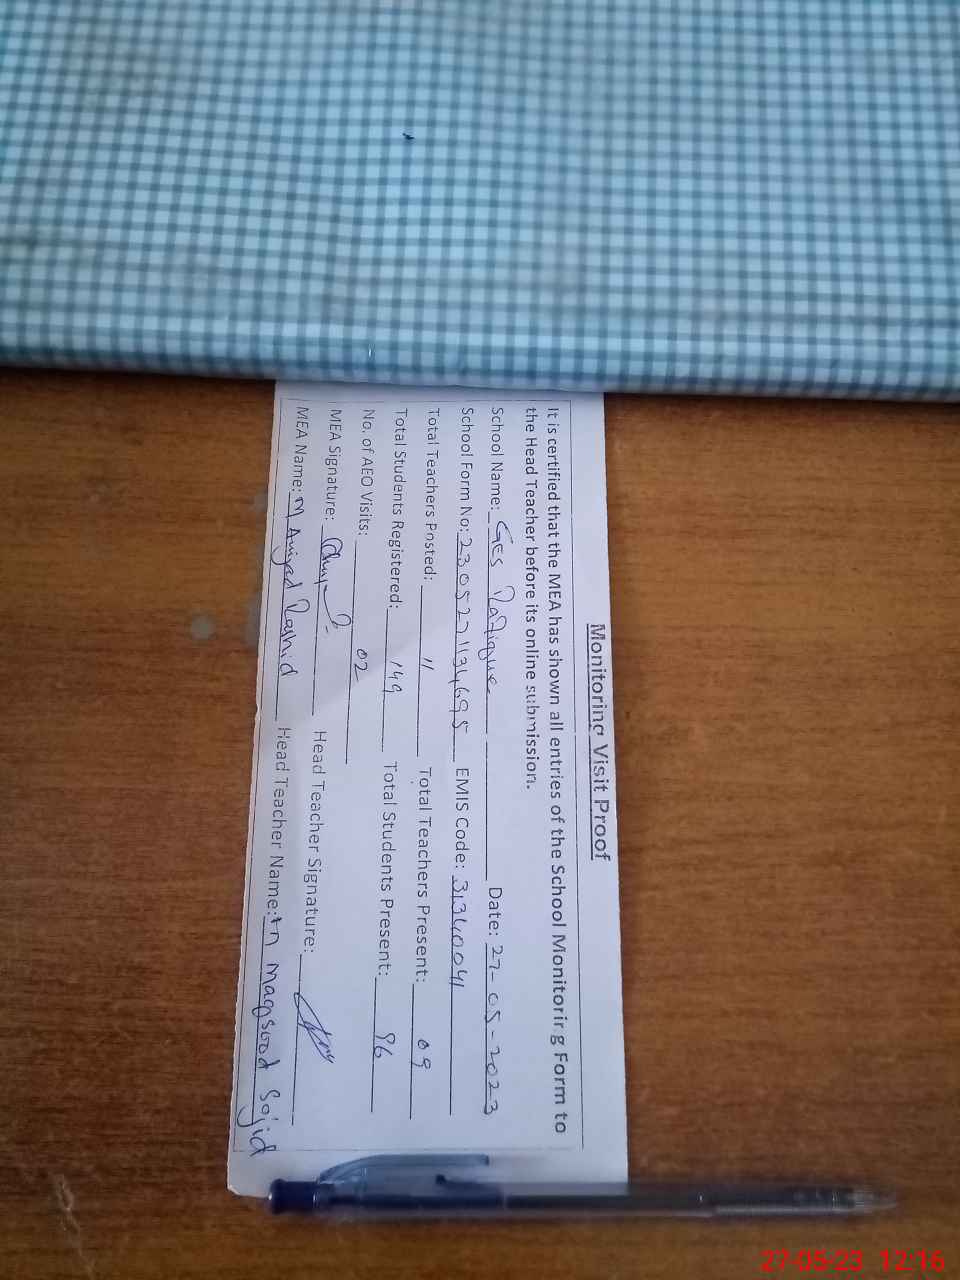 Monitoring Visit Proof
It is certified that the MEA has shown all entries of the School Monitoring Form to
the Head Teacher before its online submission.
School Name: GES Rafique Date: 27-05-2023
School Form No: 2305271134695 EMIS Code: 31340041
Total Teachers Posted: 11 Total Teachers Present: 09
Total Students Registered: 149 Total Students Present: 96
No. of AEO Visits: 02
MEA Signature: Head Teacher Signature:
MEA Name: M Amjad Rashid Head Teacher Name: M Maqsood Sajid
27-05-23 12:16